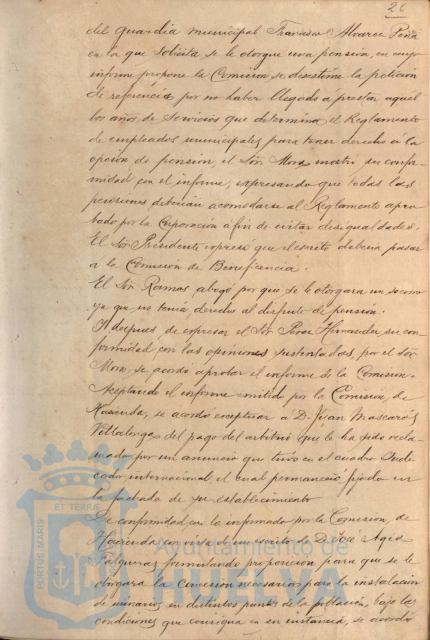 26
del guardia municipal Francisco Alvarez Peña
en la que solicita se le otorgue una pensión, en cuyo
informe propone la Comision se desestime la petición
de referencia por no haber llegado a prestar aquél
los años de servicios que determina el Reglamento
de empleados municipales para tener derecho á la
opción de pensión, el Sór. Mora mostró su confor-
midad con el informe, expresando que todas las
pensiones deberían acomodarse al Reglamento apro-
bado por la Corporación á fin de evitar desigualdades.
El Sór. Presidente expresó que el escrito debería pasar
a la Comisión de Beneficencia.
El Sór. Ramos abogó por que se le otorgara un socorro
ya que no tenía derecho al disfrute de pensión.
Y después de expresar el Sór. Perez Hernandez su con-
formidad con las opiniones sustentadas, por el Sór.
Mora, se acordó aprobar el informe de la Comisión.
Aceptando el informe emitido por la Comisión, de
Hacienda, se acordó exceptuar á D. Juan Mascarós
Villalonga del pago del arbitrio que le ha sido recla-
mado por un anuncio que tuvo en el cuadro Indi-
cador internacional, el cual permaneció fijado en
la fachada de su establecimiento
De conformidad con lo informado por la Comisión, de
Hacienda en vista de un escrito de D. José
Falgueras formulando proposición para que se le
otorgara la concesión necesaria para la instalación
de urinarios en distintos puntos de la población, bajo las
condiciones que consigna en su instancia, se acordó
Ayuntamiento de
HUELVA
PORTUS MARIS
ET TERRAE